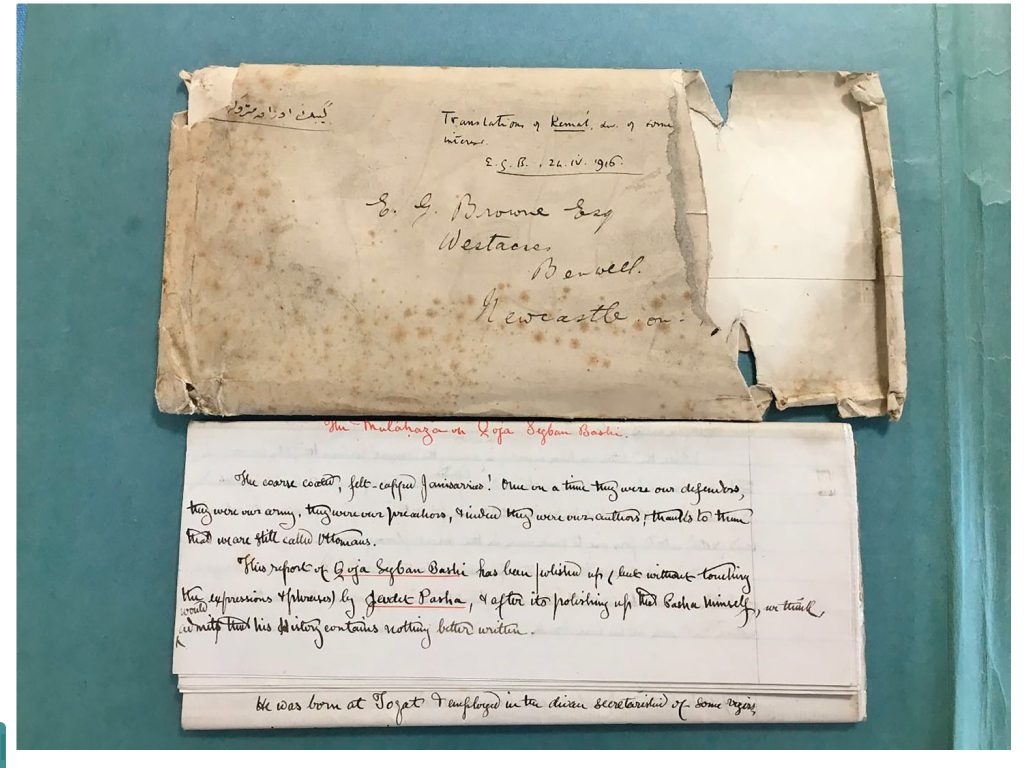 گیبك اوراق
Translations of Kemal, &c. of some
interest.
E. G. B., 24. iv. 1916.
E. G. Browne Esq
Westacres
Benwell.
Newcastle on-
The Mulāḥaẓa on Qoja Segban Bashi.
The coarse coated, felt-capped Janissaries! Once on a time they were our defenders,
they were our army, they were our preachers, & indeed they were our authors; thanks to them
that we are still called Ottomans.
This report of Qoja Segban Bashi has been polished up (but without touching
the expressions & phrases) by Jevdet Pasha, & after its polishing up that Pasha himself, we think,
would admit that his History contains nothing better written.
He was born at Toqat & employed in the divan secretariship of some vezirs,